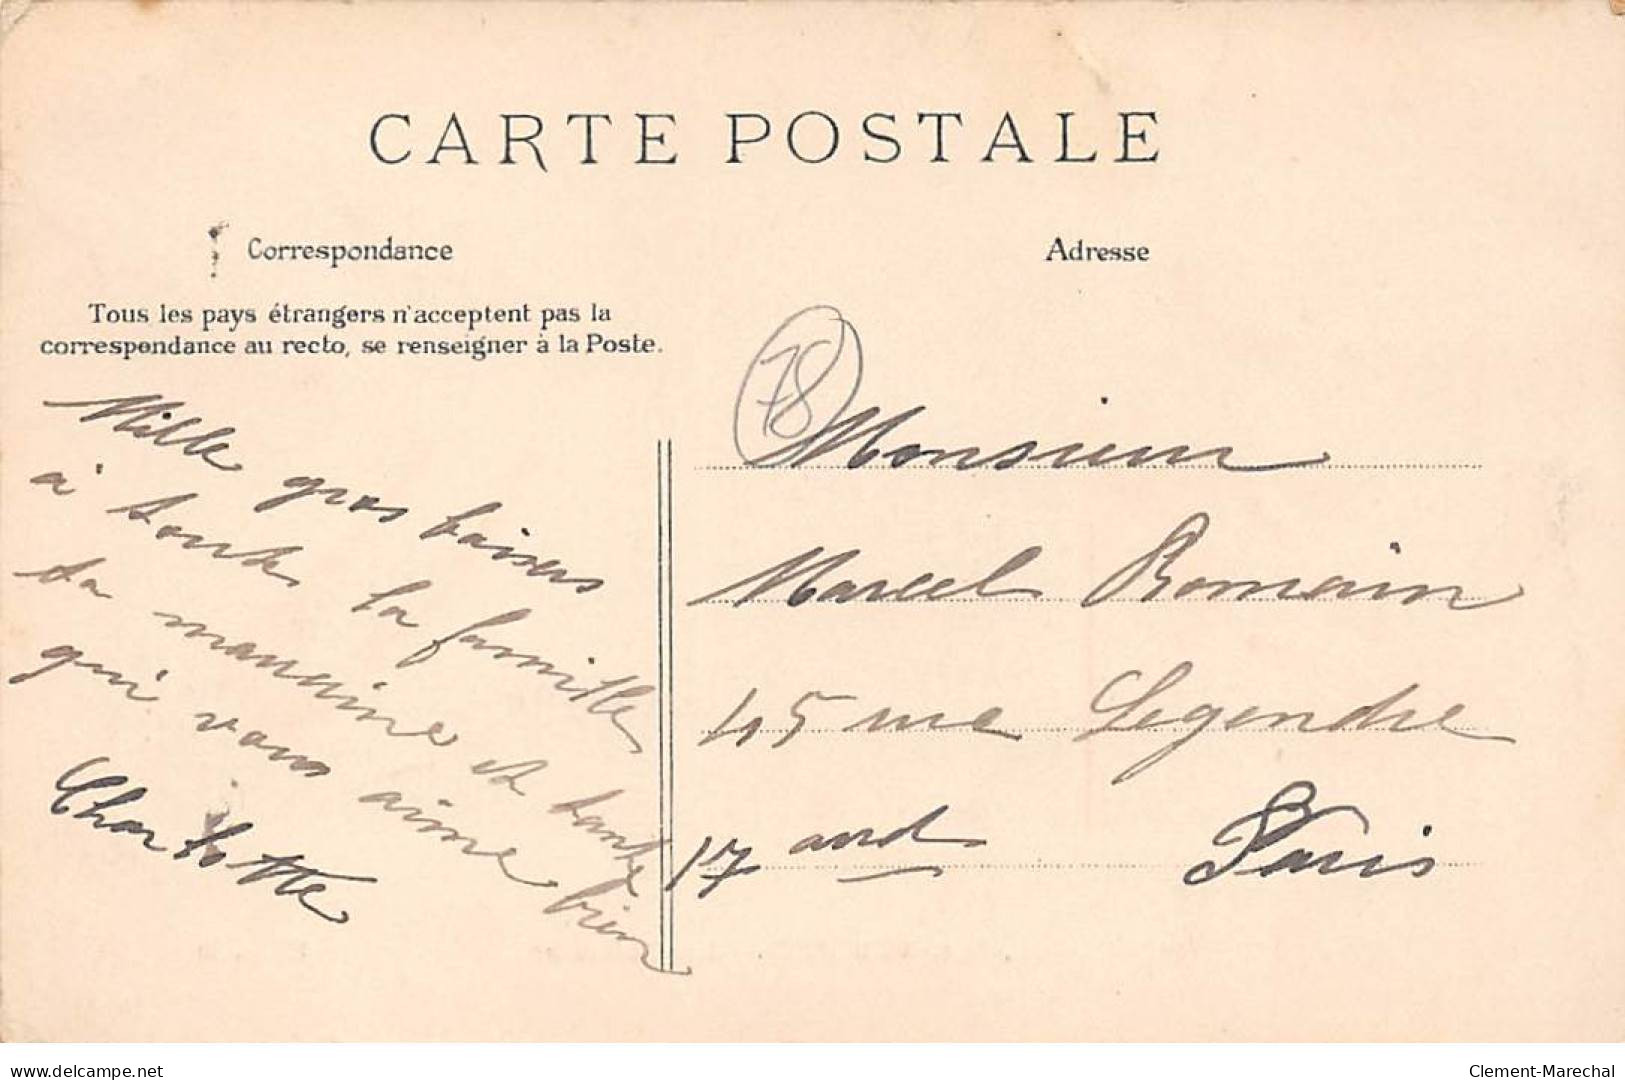 CARTE POSTALE
Correspondance
Tous les pays étrangers n'acceptent pas la
correspondance au recto, se renseigner à la Poste.
Mille gros baisers
à toute la famille
ta marraine et tante
qui vous aime bien
Charlotte
Adresse
78
Monsieur
Marcel Romain
45 rue Legendre
17 ard Paris
delcampe.net
Clement-Marechal